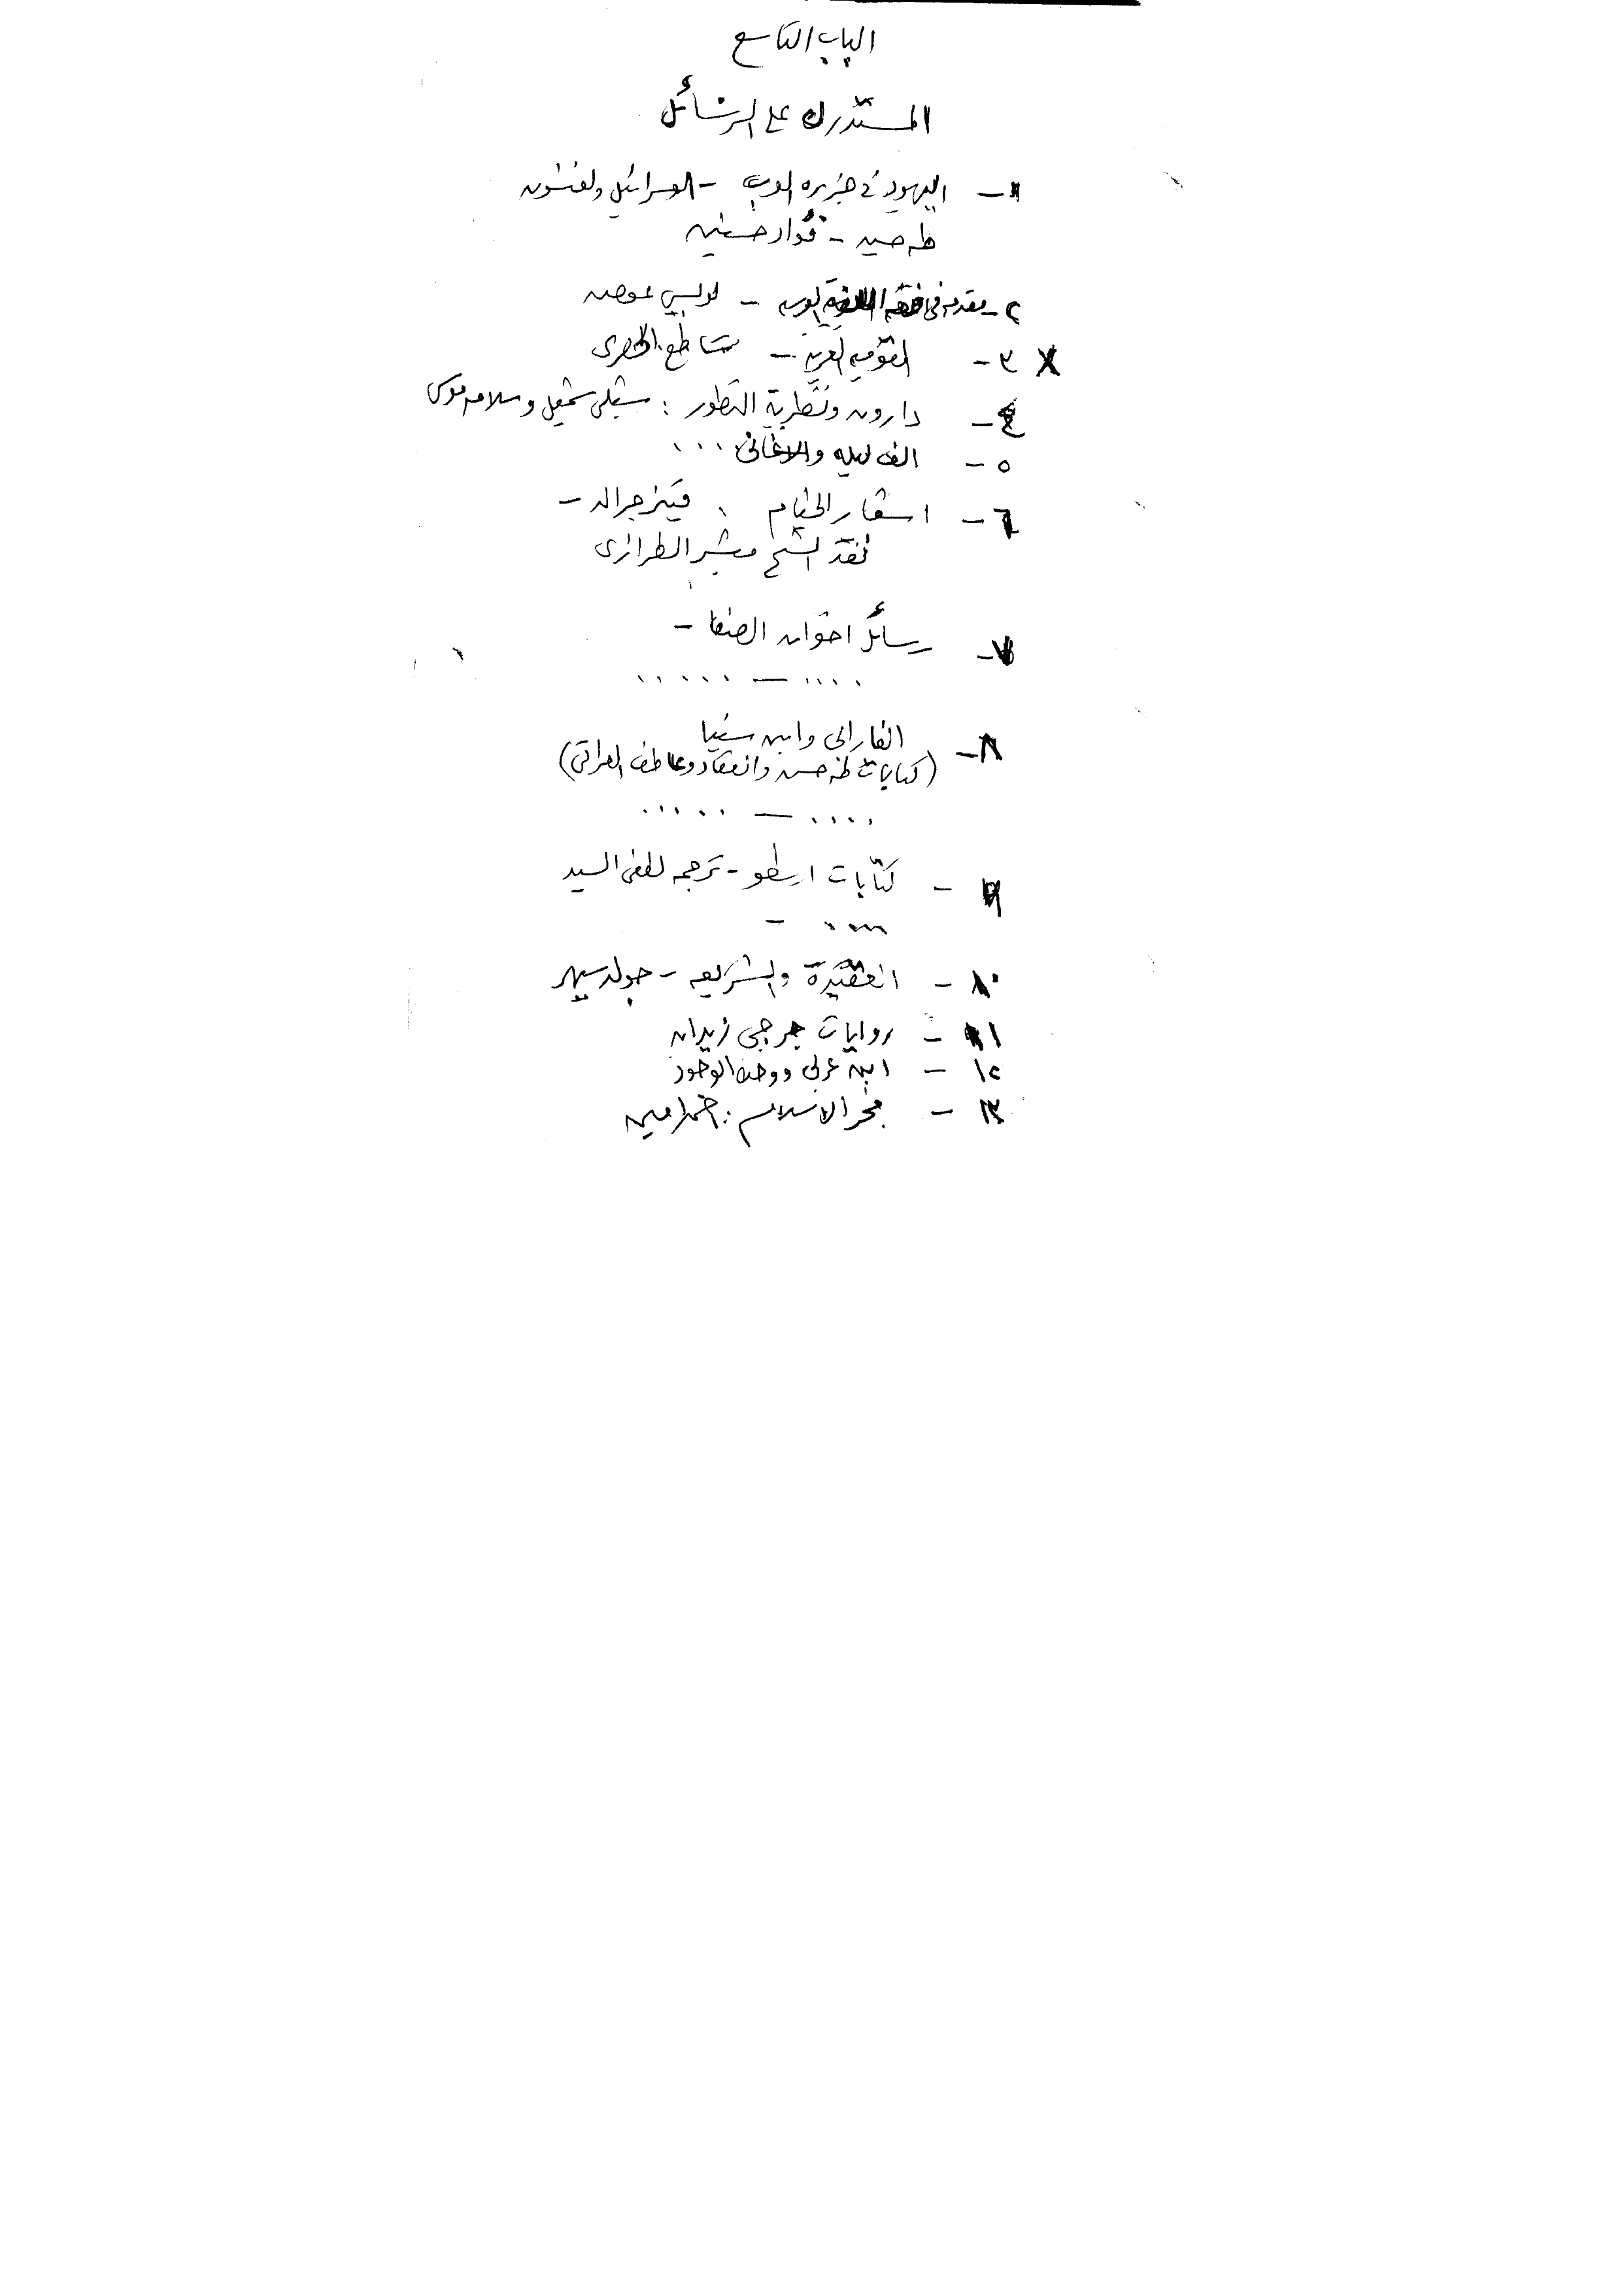 الباب التاسع
المستدرك على الرسائل
١- اليهود في جزيرة العرب - اسرائيل ولفنسون
طه حسين - فؤاد حسنين
٢- مقدمه في فقه اللغة العربيه - لويس عوض
٣- القوميه العربيه - ساطع الحصرى
٤- دارون ونظرية التطور : شبلى شميل وسلامه موسى
٥- الف ليله والاغانى ...
٦- اشعار الخيام ، فيتزجرالد -
نقد الشيخ مبشر الطرازى
٧- رسائل اخوان الصفا -
.... - .....
٨- الفارابى وابن سينا
(كتابات طه حسين والعقاد وعاطف العراقى)
.... - .....
٩- كتابات ارسطو - ترجمه لطفى السيد
.... -
١٠- العقيدة والشريعه - جولد سيهر
١١- روايات جرجى زيدان
١٢- ابن عربى ووحدة الوجود
١٣- فجر الاسلام : احمد امين